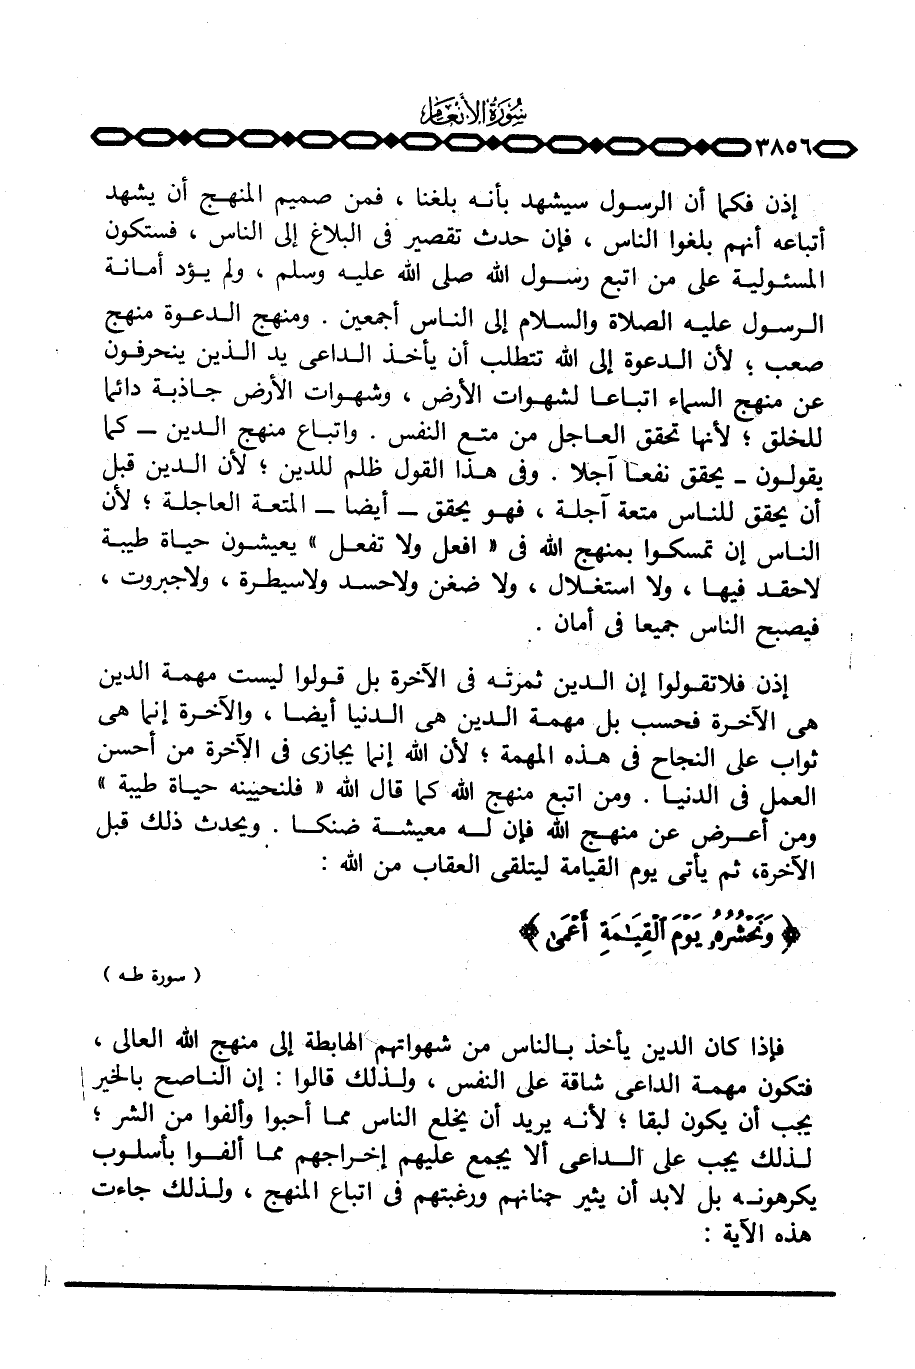 سورة الأنعام
٣٨٥٦
إذن فكما أن الرسول سيشهد بأنه بلغنا ، فمن صميم المنهج أن يشهد
أتباعه أنهم بلغوا الناس ، فإن حدث تقصير فى البلاغ إلى الناس ، فستكون
المسئولية على من اتبع رسول الله صلى الله عليه وسلم ، ولم يؤد أمانة
الرسول عليه الصلاة والسلام إلى الناس أجمعين . ومنهج الدعوة منهج
صعب ؛ لأن الدعوة إلى الله تتطلب أن يأخذ الداعى يد الذين ينحرفون
عن منهج السماء اتباعا لشهوات الأرض ، وشهوات الأرض جاذبة دائما
للخلق ؛ لأنها تحقق العاجل من متع النفس . واتباع منهج الدين ـ كما
يقولون ـ يحقق نفعاً آجلا . وفى هذا القول ظلم للدين ؛ لأن الدين قبل
أن يحقق للناس متعة آجلة ، فهو يحقق ـ أيضا ـ المتعة العاجلة ؛ لأن
الناس إن تمسكوا بمنهج الله فى « افعل ولا تفعل » يعيشون حياة طيبة
لاحقد فيها ، ولا استغلال ، ولا ضغن ولاحسد ولاسيطرة ، ولاجبروت ،
فيصبح الناس جميعا فى أمان .
إذن فلاتقولوا إن الدين ثمرته فى الآخرة بل قولوا ليست مهمة الدين
هى الآخرة فحسب بل مهمة الدين هى الدنيا أيضا ، والآخرة إنما هى
ثواب على النجاح فى هذه المهمة ؛ لأن الله إنما يجازى فى الآخرة من أحسن
العمل فى الدنيا . ومن اتبع منهج الله كما قال الله « فلنحيينه حياة طيبة »
ومن أعرض عن منهج الله فإن له معيشة ضنكا . ويحدث ذلك قبل
الآخرة، ثم يأتى يوم القيامة ليتلقى العقاب من الله :
﴿ وَنَحْشُرُهُۥ يَوْمَ ٱلْقِيَـٰمَةِ أَعْمَىٰ ﴾
( سورة طه )
فإذا كان الدين يأخذ بالناس من شهواتهم الهابطة إلى منهج الله العالى ،
فتكون مهمة الداعى شاقة على النفس ، ولذلك قالوا : إن الناصح بالخير
يجب أن يكون لبقا ؛ لأنه يريد أن يخلع الناس مما أحبوا وألفوا من الشر ؛
لذلك يجب على الداعى ألا يجمع عليهم إخراجهم مما ألفوا بأسلوب
يكرهونه بل لابد أن يثير حنانهم ورغبتهم فى اتباع المنهج ، ولذلك جاءت
هذه الآية :